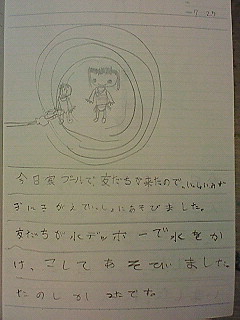 7.27
今日家プールで、友だちが来たので、いっしょに
ぎにきがえて、いっしょにあそびました。
友だちが水デッポーで水をか
け、こしてあそでいました。
たのしかったでね